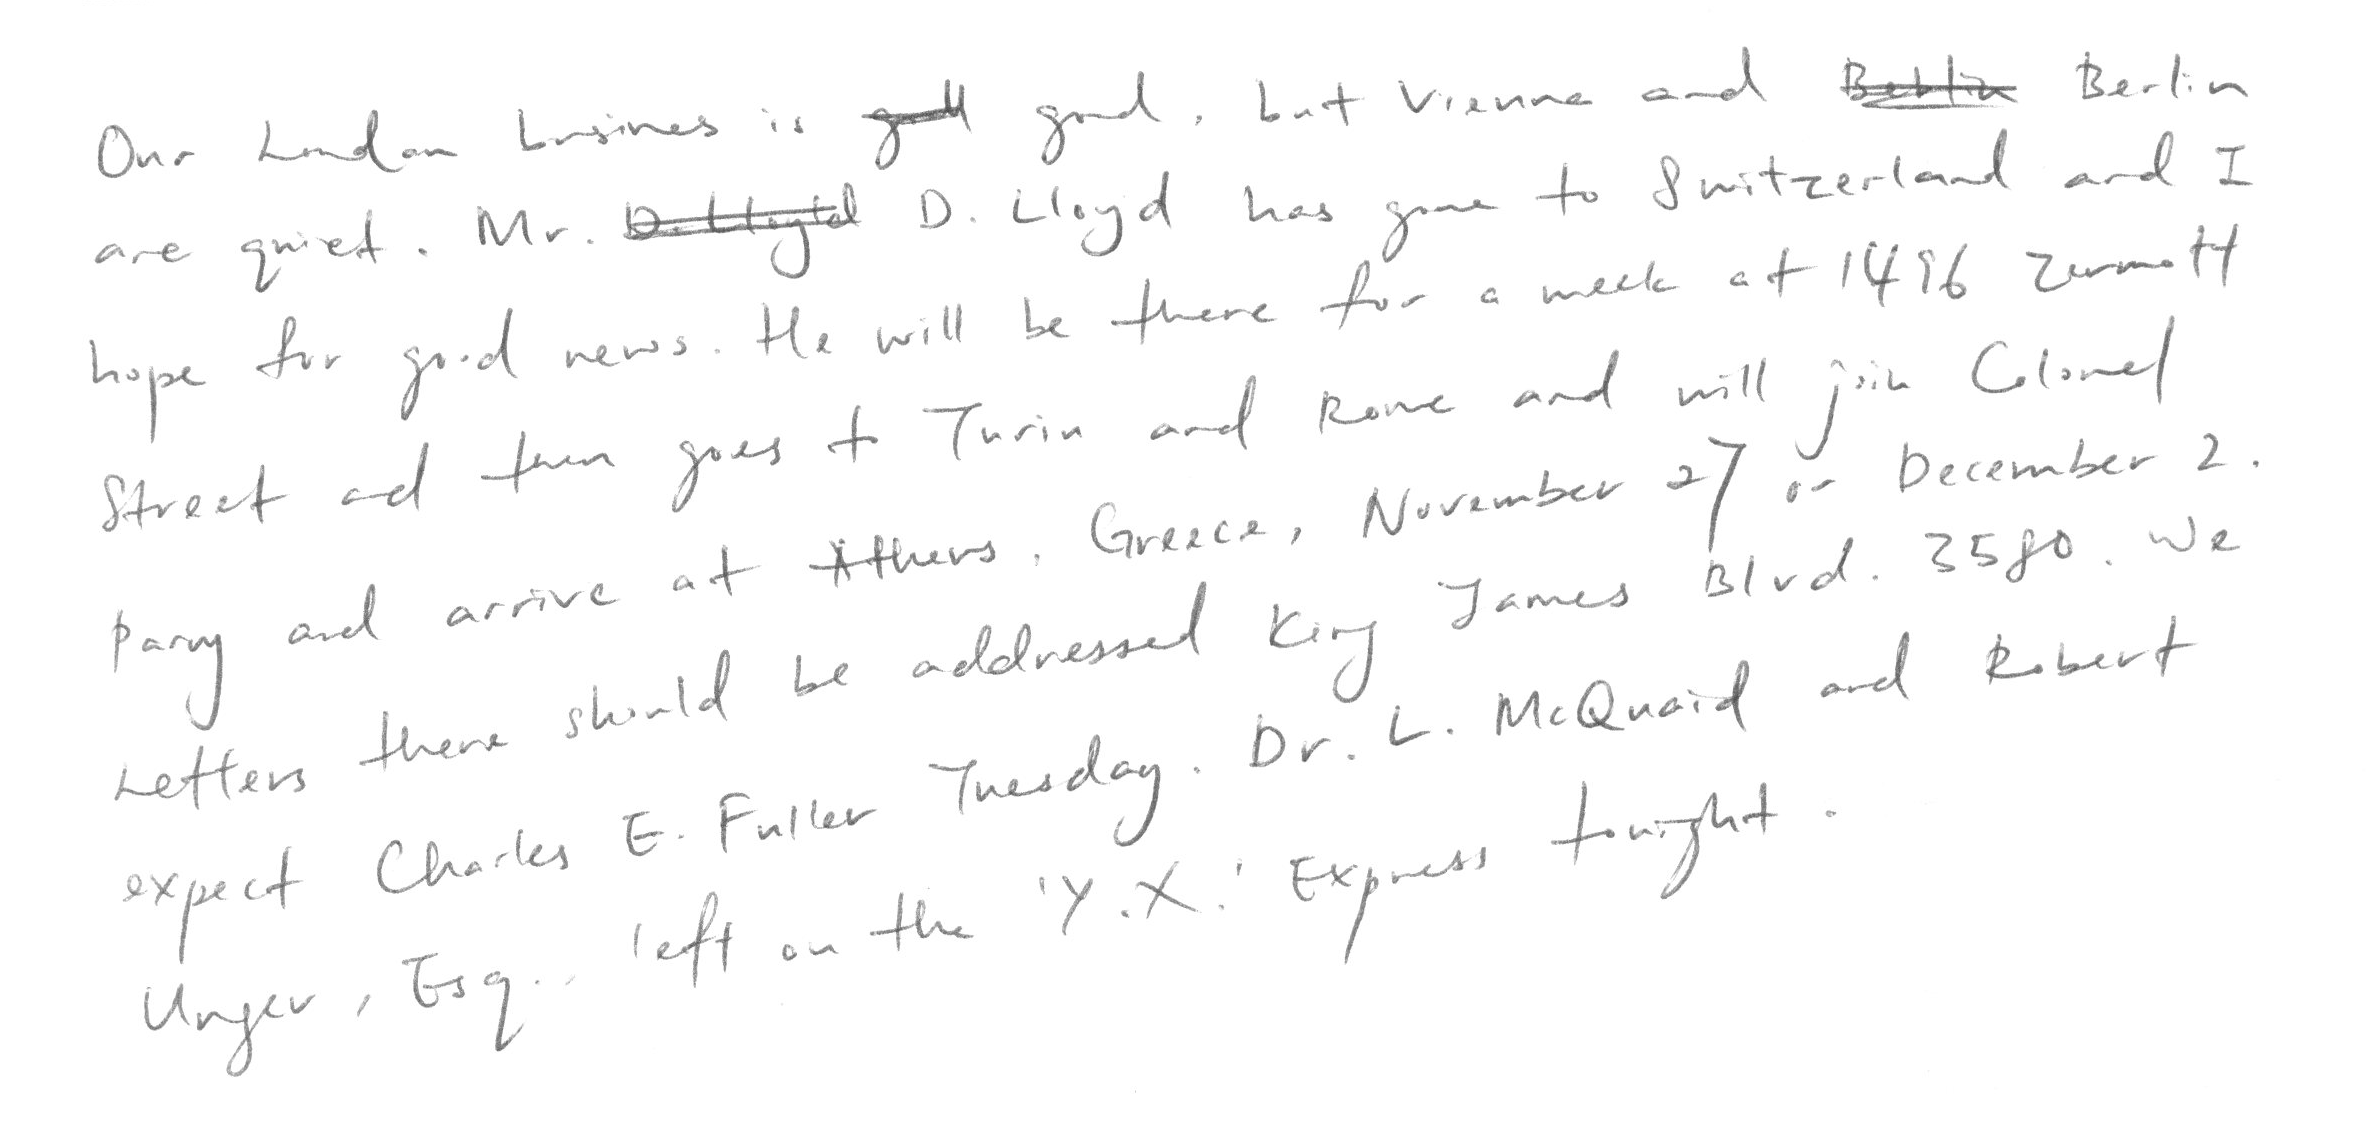 Our London business is good, but Vienna and Berlin
are quiet. Mr. D. Lloyd has gone to Switzerland and I
hope for good news. He will be there for a week at 1496 Zermott
Street ad then goes to Turin and Rome and will join Colonel
Parry and arrive at Athens, Greece, November 27 or December 2.
Letters there should be addressed King James Blvd. 3580. We
expect Charles E. Fuller Tuesday. Dr. L. McQuaid and Robert
Unger, Esq., left on the 'Y.X.' Express tonight.